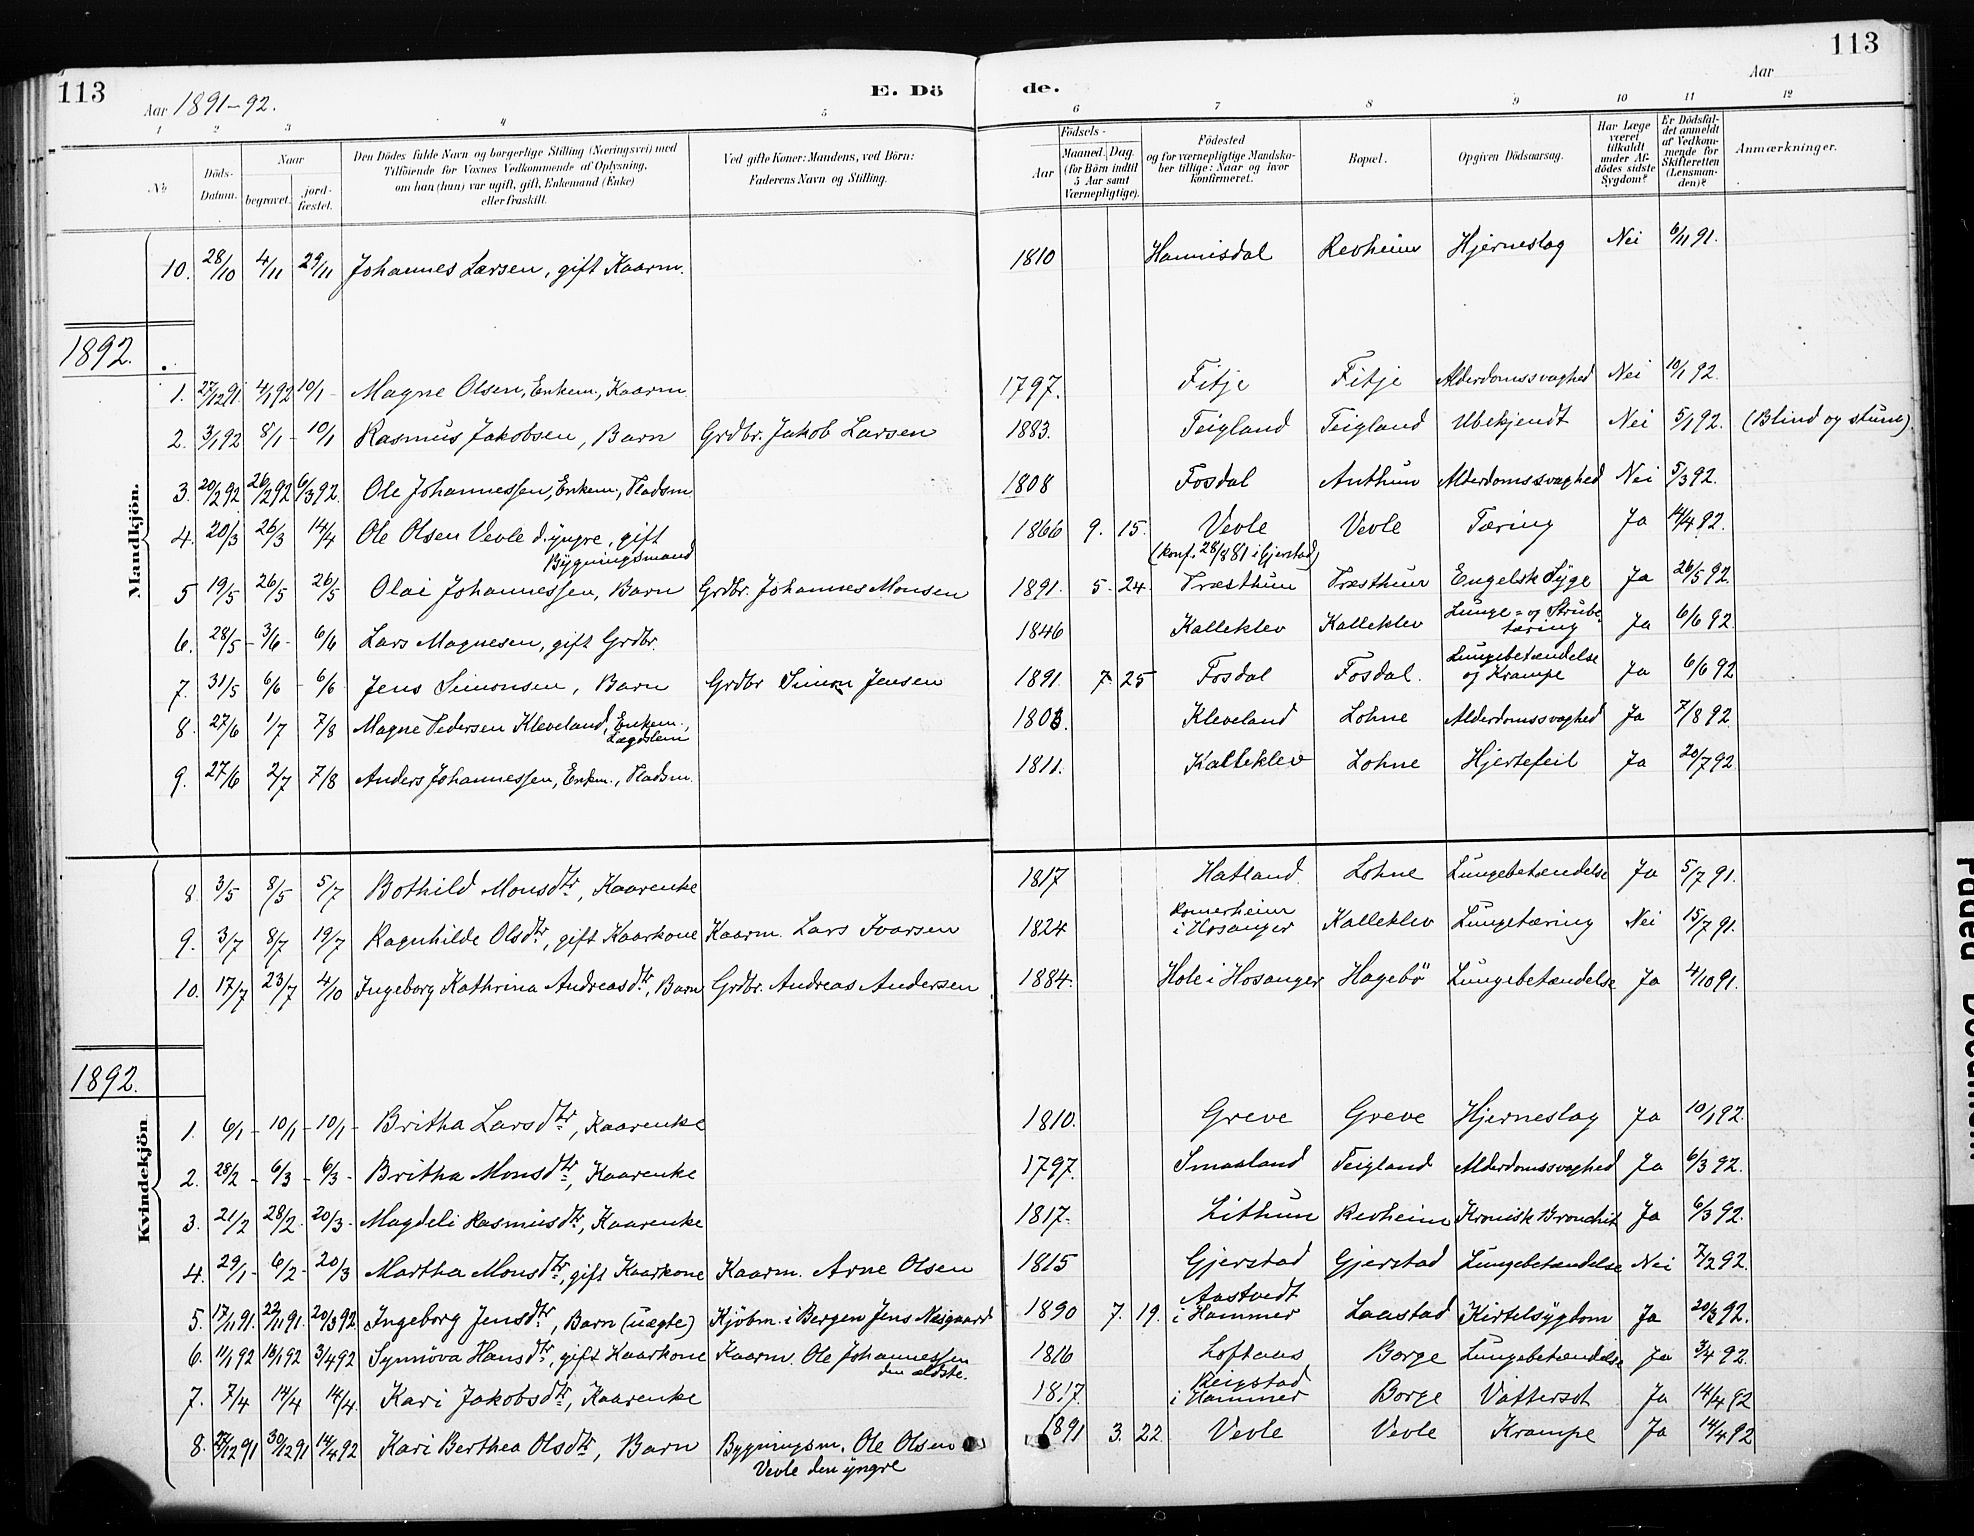 113
113
Aar 1891-92.
E. Dö
de.
Aar
1 2 3 4 5 6 7 8 9 10 11 12
No
Döds-Datum.
Naar
begravet.
jord-fæstet.
Den Dödes fulde Navn og borgerlige Stilling (Næringsvei) med
Tilföiende for Voxnes Vedkommende af Oplysning,
om han (hun) var ugift, gift, Enkemand (Enke)
eller fraskilt.
Ved gifte Koner: Mandens, ved Börn:
Faderens Navn og Stilling.
Födsels-
Aar
Maaned. Dag
(for Börn indtil
5 Aar samt
Værnepligtige).
Födested
og for værnepligtige Mandska-
ber tillige: Naar og hvor
konfirmeret.
Bopæl.
Opgiven Dödsaarsag.
Har Læge
været
tilkaldt
under Af-
dödes sidste
Sygdom?
Er Dödsfal-
det anmeldt
af Vedkom-
mende for
Skifteretten
(Lensman-
den)?
Anmærkninger.
Mandkjön.
10. 28/10 4/11 29/11 Johannes Larsen, gift Kaarm. 1810 Hannisdal Revheim Hjerneslag Nei 6/11 91.
1892.
1. 27/12 91. 4/1 92 10/1 - Magne Olsen, Enkem., Kaarm. 1797. Fitje Fitje Alderdomssvaghed Nei 10/1 92.
2. 3/1 92 8/1 - 10/1 Rasmus Jakobsen, Barn Grdbr. Jakob Larsen 1883. Teigland Teigland Ubekjendt Nei 5/1 92. (Blind og stum).
3. 20/2 92. 26/2 92 6/3 92. Ole Johannessen, Enkem., Pladsm. 1808 Fosdal Anthun Alderdomssvaghed Nei 5/3 92.
4. 20/3 26/3 14/4 Ole Olsen Vevle d. yngre, gift
Bygningsmand 1866 9. 15. Vevle Vevle Tæring Ja 14/4 92.
(konf. 28/8 81 i Gjerstad)
5 19/5 26/5 26/5 Olai Johannessen, Barn Grdbr. Johannes Monsen 1891. 5. 24. Træsthun Træsthun Engelsk Syge Ja 26/5 92.
6. 28/5 - 3/6 - 6/6 Lars Magnesen, gift Grdbr. 1846 Kalleklev Kalleklev Lunge- og Strube-
tæring Ja 6/6 92.
7. 31/5 6/6 - 6/6 Jens Simonsen, Barn Grdbr Simon Jensen 1891 7 25 Fosdal Fosdal. Lungebetændelse
og Krampe Ja 6/6 92
8. 27/6 1/7 7/8 Magne Pedersen Kleveland, Enkem.,
Lægdslem 1803. Kleveland Lohne Alderdomssvaghed Ja 7/8 92.
9. 27/6 2/7 7/8 Anders Johannessen, Enkm., Pladsm. 1811. Kalleklev Lohne Hjertefeil Ja 20/7 92
Kvindekjön
8. 3/5 8/5 5/7 Bothild Monsdtr, Kaarenke 1817 Hatland. Lohne Lungebetændelse Ja 5/7 91.
9. 3/7 8/7 19/7 Ragnhilde Olsdtr, gift Kaarkone Kaarm. Lars Ivarsen 1824 Romerheim
i Hosanger Kalleklev Lungetæring Nei 15/7 91.
10. 17/7 23/7 4/10 Ingeborg Kathrina Andreasdtr, Barn Grdbr. Andreas Andersen 1884. Hole i Hosanger Hagebö Lungebetændelse Ja 4/10 91.
1892.
1. 6/1 - 10/1 - 10/1 - Britha Larsdtr, Kaarenke 1810. Greve Greve Hjerneslag Ja 10/1 92.
2. 28/2 - 6/3 - 6/3 - Britha Monsdtr, Kaarenke 1797. Smaaland Teigland Alderdomssvaghed Ja 6/3 92.
3. 21/2 28/2. 20/3 - Magdeli Rasmusdtr, Kaarenke 1817. Lithun Revheim Kronisk Bronchit Ja 6/3 92.
4. 29/1 - 6/2 - 20/3 Martha Monsdtr, gift Kaarkone Kaarm. Arne Olsen 1815 Gjerstad Gjerstad Lungebetændelse Nei 7/2 92.
5. 17/11 91. 22/11 91. 20/3 92 Ingeborg Jensdtr, Barn (uægte) Kjöbm. i Bergen Jens Nesgaard 1890 7. 19. Aastvedt
i Hammer Laastad Kirtelsygdom Ja 20/3 92.
6. 11/1 92 16/1 92 3/4 92 Synnöva Hansdtr, gift Kaarkone Kaarm. Ole Johannessen
den ældste. 1816 Loftaas Borge Lungebetændelse Ja 3/4 92.
7. 7/4 14/4 14/4. Kari Jakobsdtr, Kaarenke 1817. Reigstad
i Hammer Borge Vattersot Ja 14/4 92
8. 22/12 91 30/12 91 14/4 92 Kari Berthea Olsdtr, Barn Bygningsm. Ole Olsen
Vevle den yngre 1891 3. 22. Vevle Vevle Krampe Ja 14/4 92